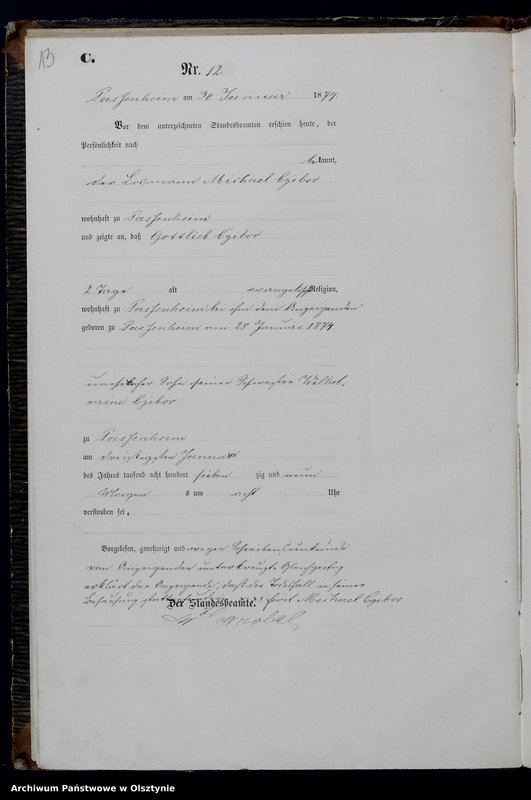 13
C.
Nr. 12
Passenheim am 30 Januar 1879.
Vor dem unterzeichneten Standesbeamten erschien heute, der
Persönlichkeit nach
bekannt,
der Losmann Michael Czibor
wohnhaft zu Passenheim
und zeigte an, daß Gottlieb Czibor
2 Tage alt evangelischer Religion,
wohnhaft zu Passenheim bei ihm dem Anzeigenden
geboren zu Passenheim am 28 Januar 1879
unehelicher Sohn seiner Schwester Wilhel-
mine Czibor
zu Passenheim
am dreißigsten Januar en
des Jahres tausend acht hundert sieben zig und neun
Morgens um acht Uhr
verstorben sei.
Vorgelesen, genehmigt und wegen Schreibensunkunde
vom Anzeigenden unterkreuzt. Gleichzeitig
erklärt der Anzeigende, daß der Todesfall in seiner
Behausung Michael Czibor
Der Standesbeamte.
Archiwum Państwowe w Olsztynie